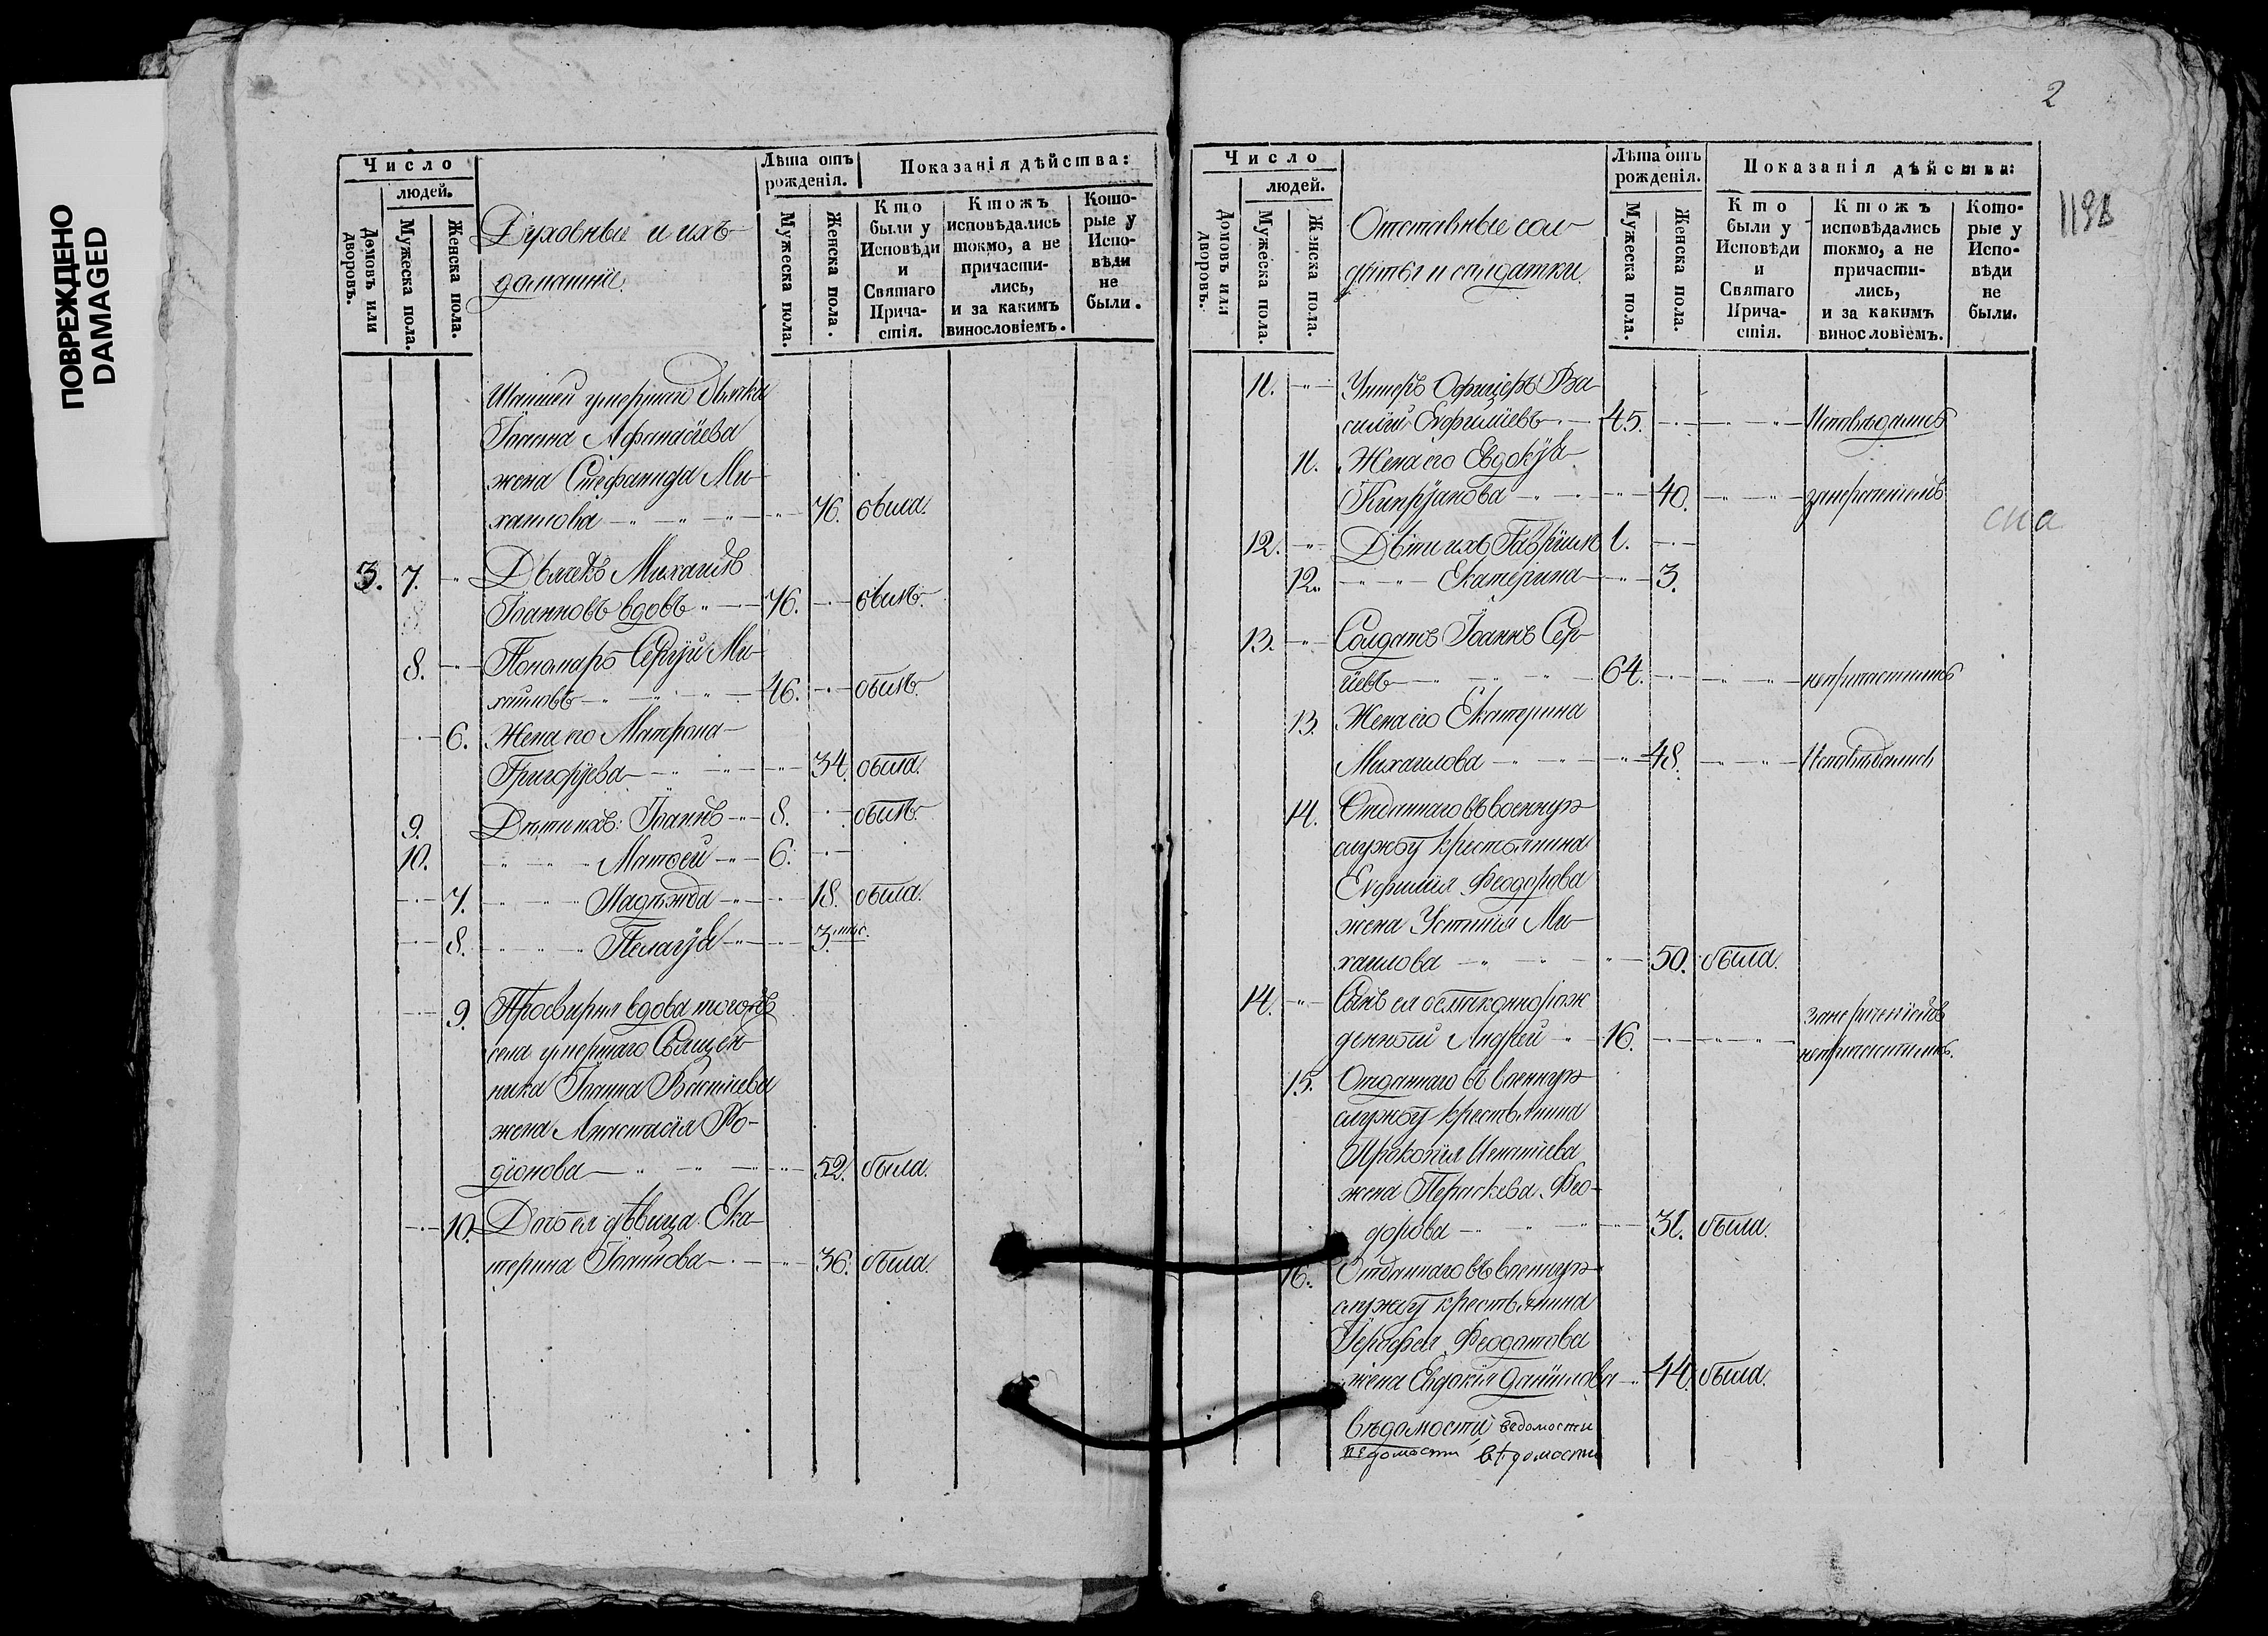 ПОВРЕЖДЕНО
DAMAGED
Число
людей.
Домовъ или дворовъ.
Мужеска пола.
Женска пола.
Духовные и ихъ
домашніе.
Лѣта отъ рожденія.
Мужеска пола.
Женска пола.
Показанія дѣйства:
Кто были у Исповѣди и Святаго Прича-стія.
Ктожъ исповѣдались токмо, а не причасти-лись, и за какимъ винословіемъ.
Кото-рые у Испо-вѣди не были.
умершаго дьячка
Іоанна Афанасіева
жена Стефанида Ми-
хаилова 76. была.
3. 7. Дьячекъ Михаилъ
Іоанновъ вдовъ 76. былъ.
8. Пономарь Сергій Ми-
хайловъ 46. былъ.
6. Жена его Матрона
Григоріева 34. была.
9. Дѣти ихъ: Іоаннъ 8. былъ.
10. Матѳей 6.
7. Надежда 18. была.
8. Пелагія 3 мѣс.
9. Просвирня вдова тогожъ
села умершаго Священ-
ника Іоанна Васильева
жена Анастасія Ро-
діонова 52. была.
10. Дочь ея дѣвица Ека-
терина Іоаннова 36. была.
2
1198
Число
людей.
Домовъ или дворовъ.
Мужеска пола.
Женска пола.
Отставные сол-
даты и солдатки.
Лѣта отъ рожденія.
Мужеска пола.
Женска пола.
Показанія дѣйства:
Кто были у Исповѣди и Святаго Прича-стія.
Ктожъ исповѣдались токмо, а не причасти-лись, и за какимъ винословіемъ.
Кото-рые у Испо-вѣди не были.
11. Унтеръ Офицеръ Ва-
силій Евфиміевъ 45. Исповѣдались
11. Жена его Евдокія
Кипріанова 40. занераченіемъ
сна
12. Дѣти ихъ Гавріилъ 1.
12. Екатерина 3.
13. Солдатъ Іоаннъ Сер-
гіевъ 64. непричастились
13. Жена его Екатерина
Михаилова 48. Исповѣдались
14. Отданнаго въ военную
службу крестьянина
Евфимія Феодорова
жена Устинія Ми-
хаилова 50. была.
14. Сынъ ея незаконнорож
денной Андрей 16. занераченіемъ
непричастились.
15. Отданнаго въ военную
службу крестьянина
Прокопія Игнатіева
жена Пераскева Фео-
дорова 31. была.
16. Отданнаго въ военную
службу крестьянина
Іерофея Феодотова
жена Евдокія Даниилова 44. была.
вѣдомости ведомости
ведомости вѣдомости